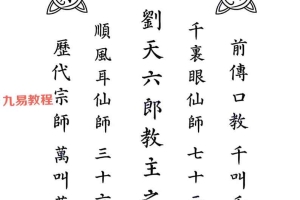 前傳口教 千叫千
千裏眼仙師 七十二
劉天六郎教主之
順風耳仙師 三十六
歷代宗師 萬叫萬
九易教程